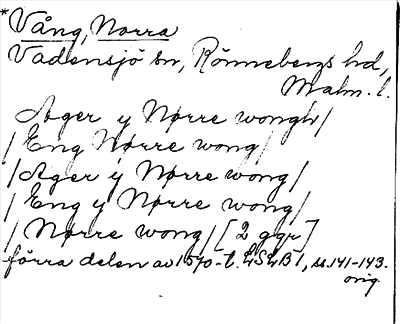 *Vång, Norra
Vadensjö sn, Rönnebergs hd,
Malm. l.
Ager y Nørre wongh/
/Eng Nørre wong/
/Ager y Nørre wong/
/Eng y Nørre wong/
/Nørre wong/ [2 ggr]
förra delen av 1570-t. LSLB 1, ss. 141-143.
orig.